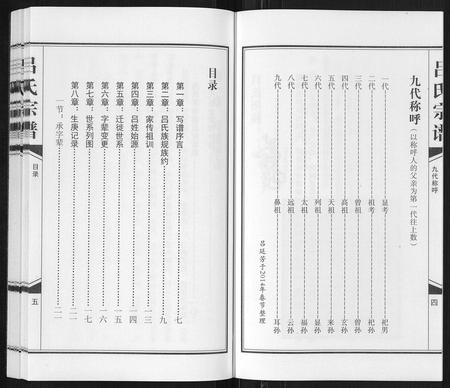 吕氏宗谱
九代称呼
四
九代称呼（以称呼人的父亲为第一代往上数）
一代……显考……祀男
二代……祖考……祀孙
三代……曾祖……曾孙
四代……高祖……玄孙
五代……天祖……来孙
六代……列祖……显孙
七代……太祖……福孙
八代……远祖……云孙
九代……鼻祖……耳孙
吕延芳于2014年春节整理
目录
第一章：写谱序言……七
第二章：吕氏族规族约……九
第三章：家传祖训……一三
第四章：吕姓始源……一四
第五章：迁徙世系……一五
第六章：字辈变更……一六
第七章：世系列图……一七
第八章：生庚记录……二一
一节：承字辈……二一
吕氏宗谱
目录
五